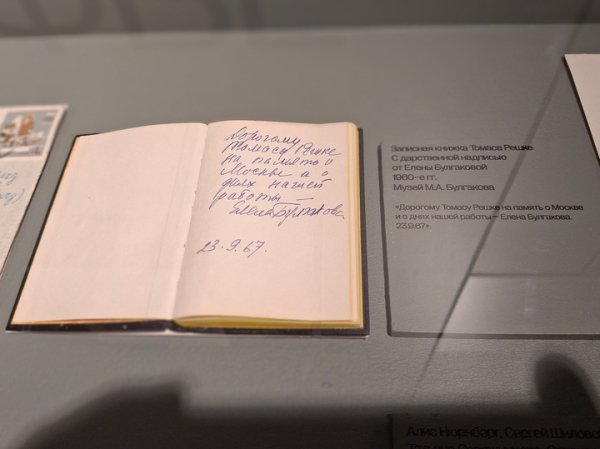 Дорогому
Томасу Решке
на память о
Москве и о
днях нашей
работы –
Елена Булгакова
23.9.67.
Записная книжка Томаса Решке
С дарственной надписью
от Елены Булгаковой
1960-е гг.
Музей М.А. Булгакова
«Дорогому Томасу Решке на память о Москве
и о днях нашей работы – Елена Булгакова.
23.9.67».
Алис Нюрнберг, Сергей Шиловс